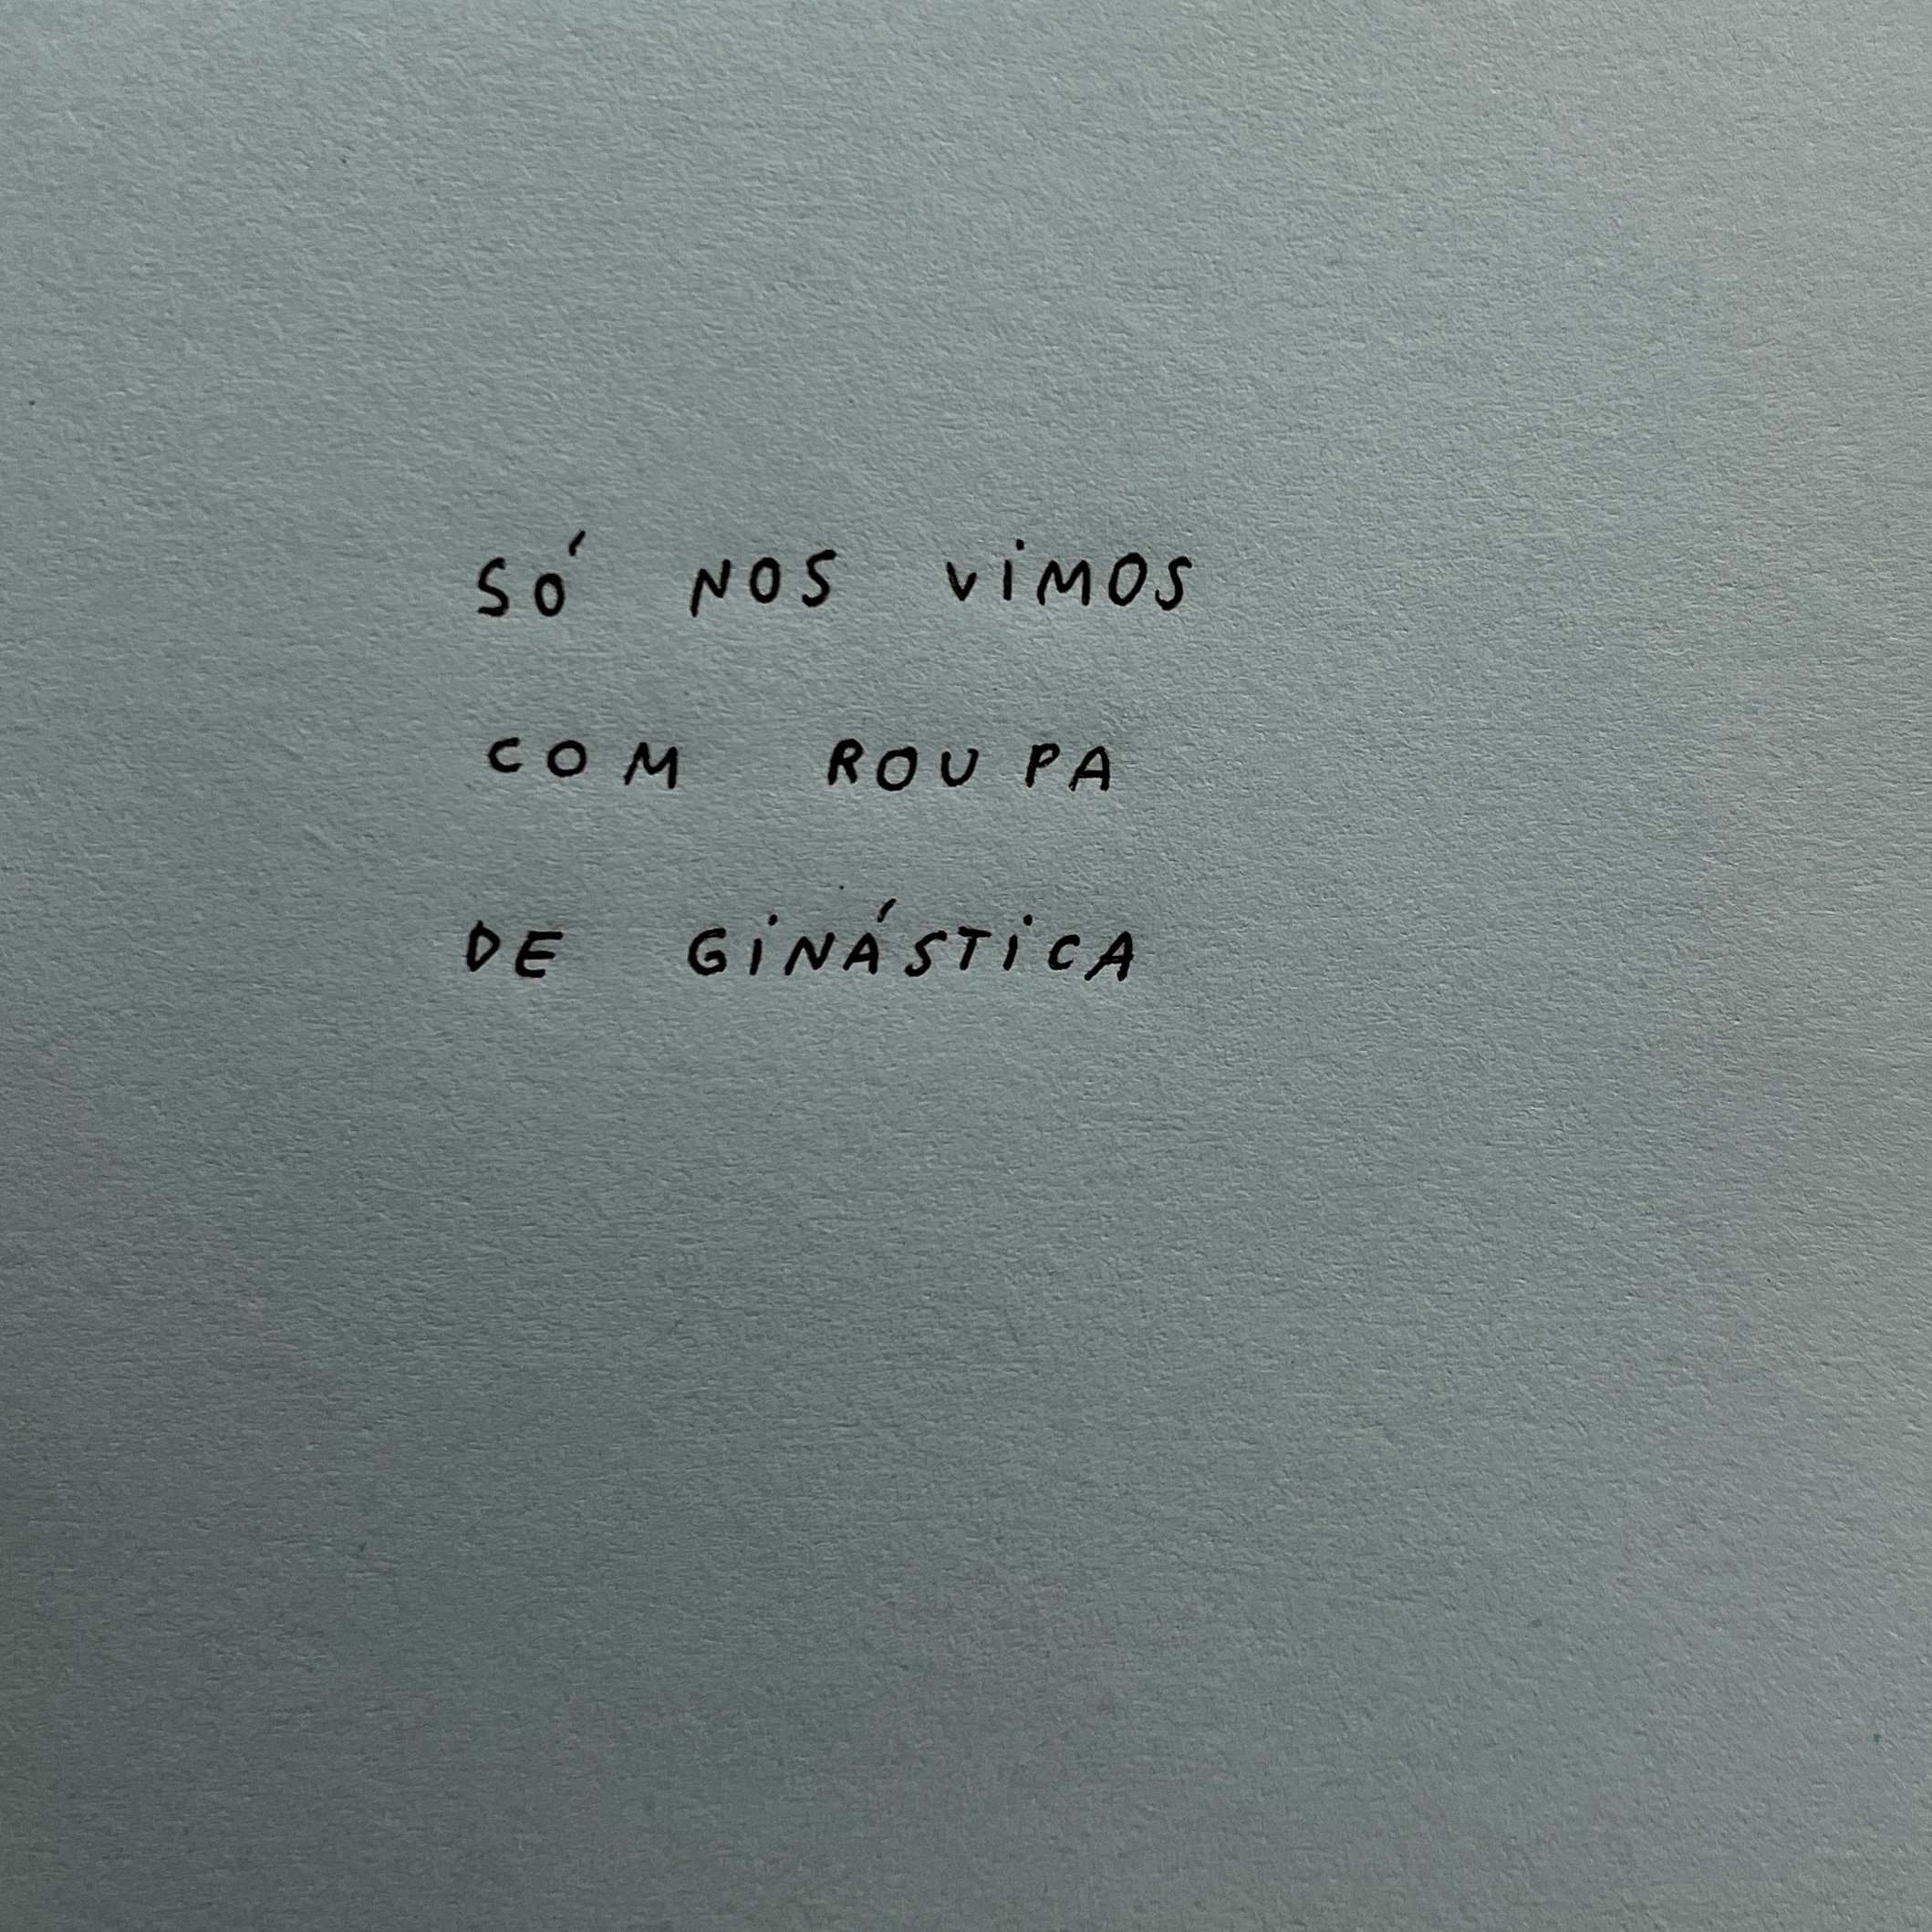 SÓ NOS ViMOS
COM ROUPA
DE GiNÁSTiCA